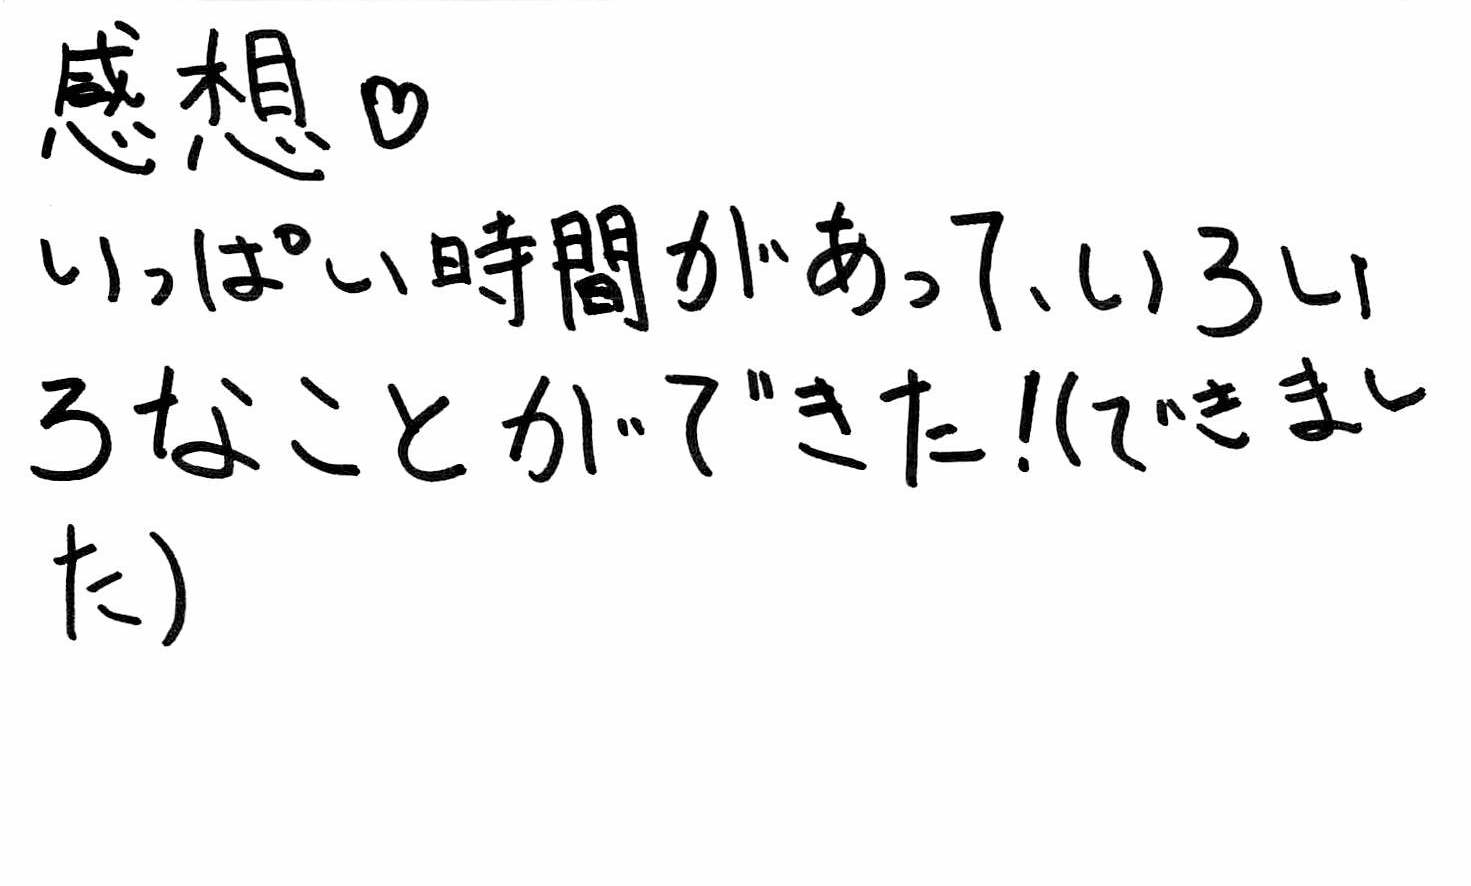 感想♡
いっぱい時間があって、いろい
ろなことができた！（できまし
た）